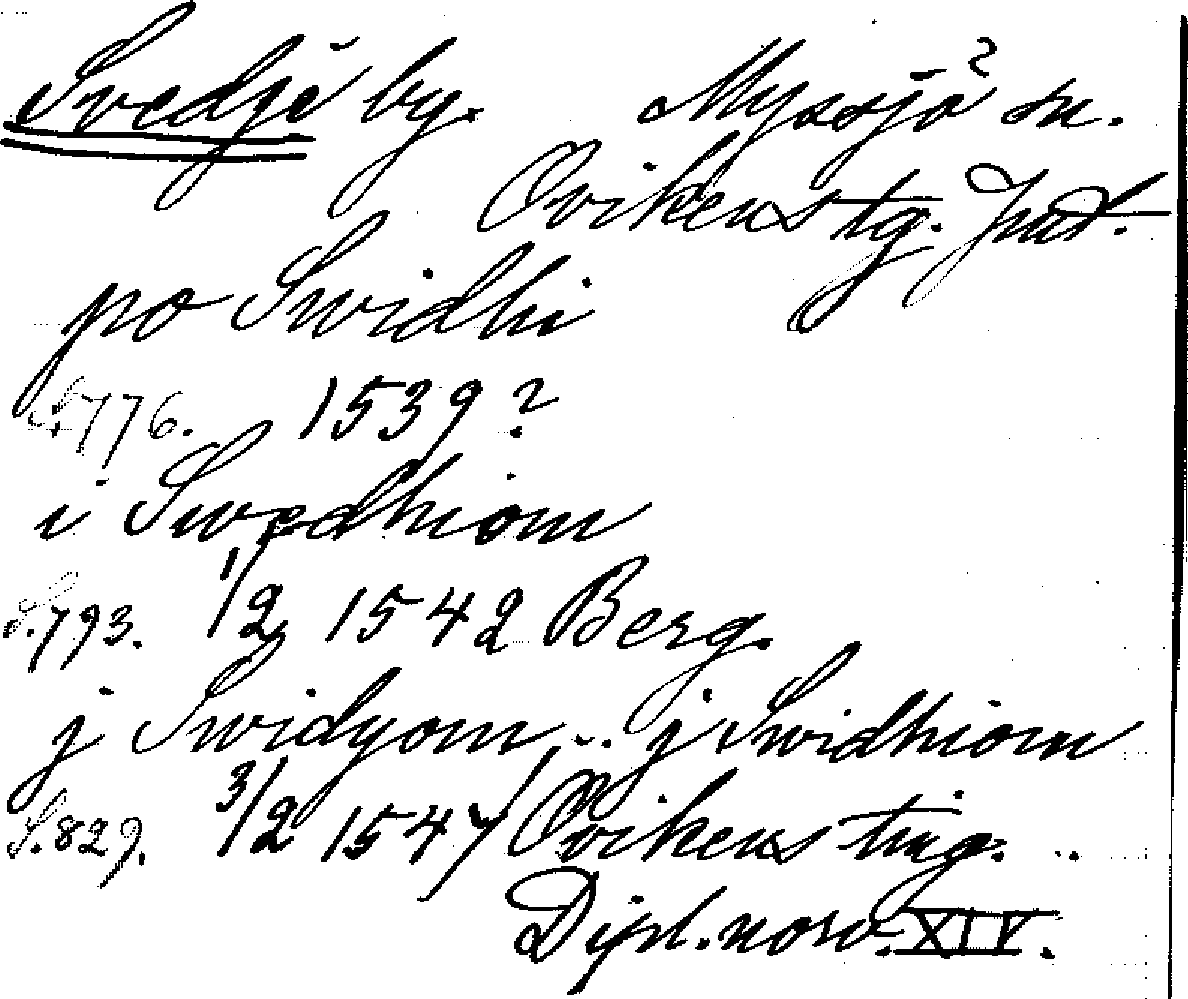 Svedje by. Myssjö sn.
Ovikens tg. Jmt.
po Swidhi
S. 776. 1539?
i Swedhiom
S. 793. 1/2 1542 Berg.
j Swidyom .. j Swidhiom
S. 829. 3/2 1547 Ovikens ting. ..
Dipl. norv. XIV.